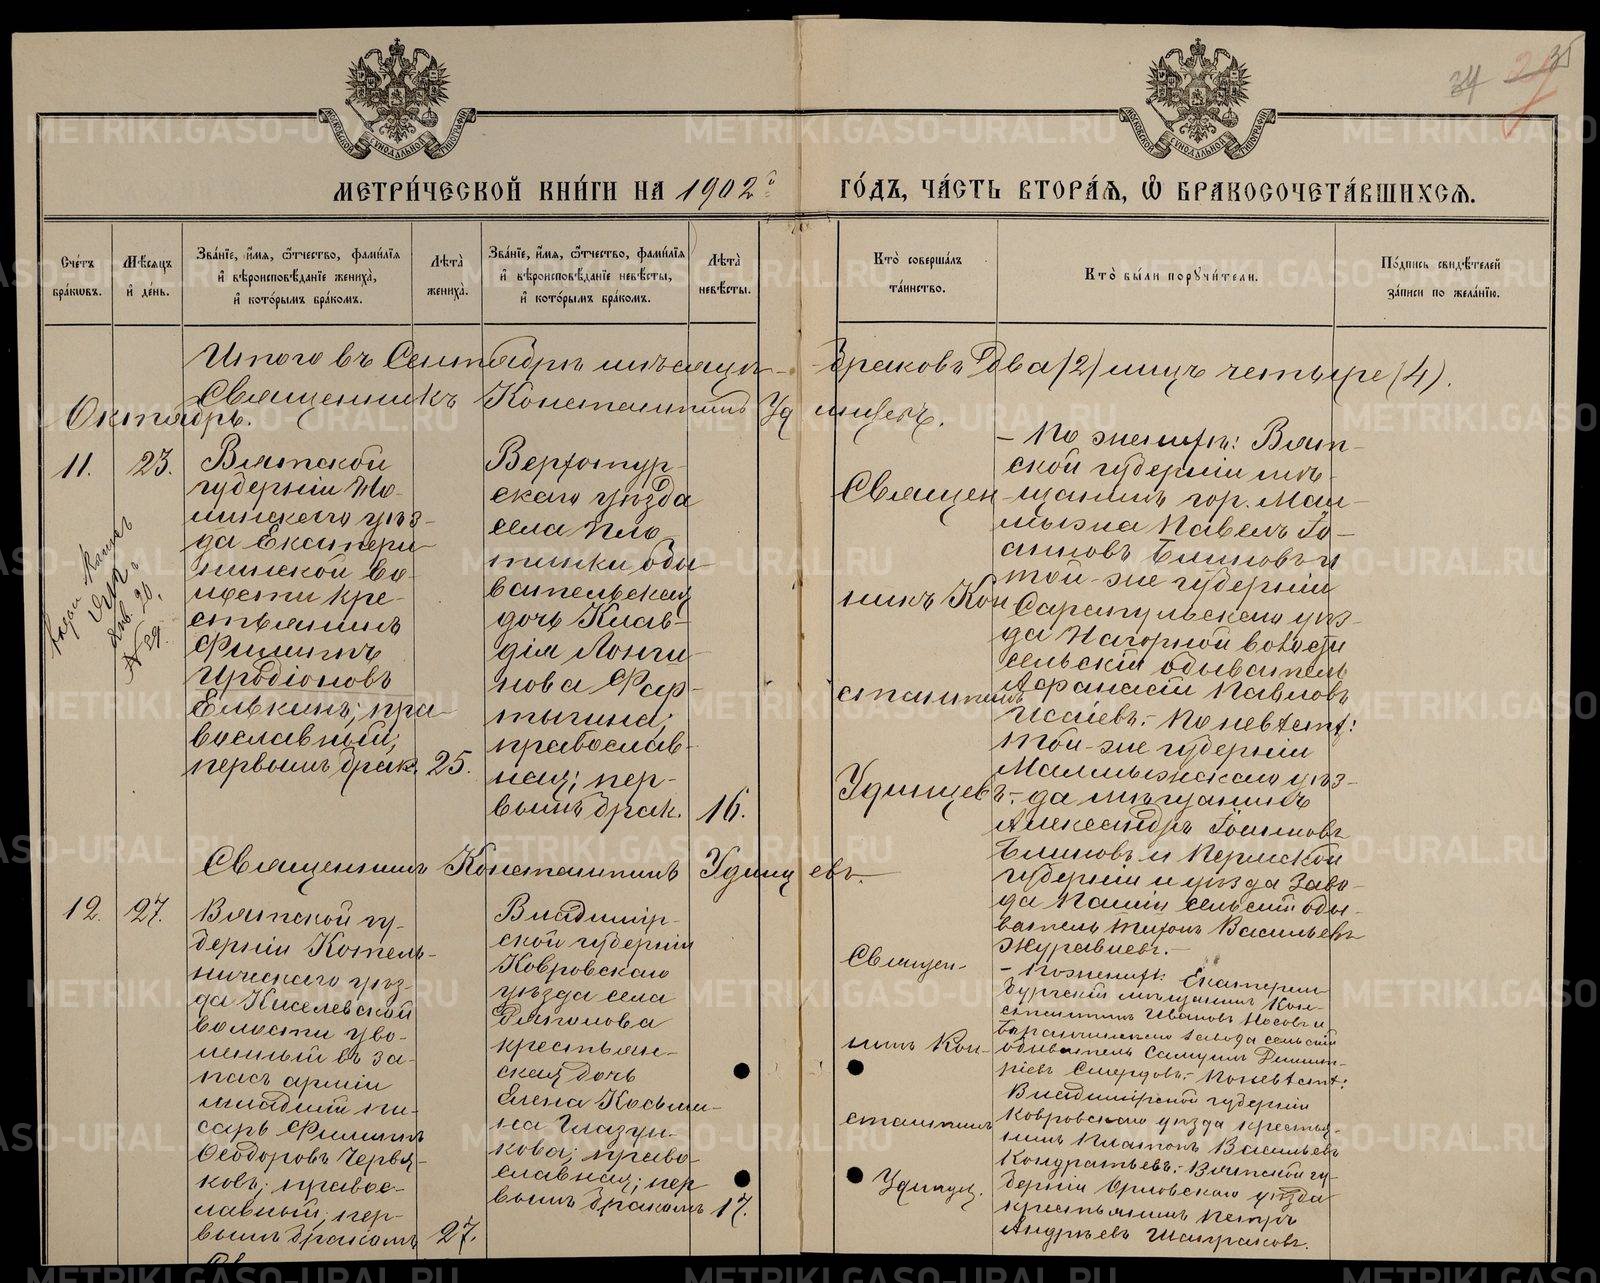 34 29 35
МЕТРИ́ЧЕСКОЙ КНИ́ГИ НА 1902й ГО́ДЪ, ЧА́СТЬ ВТОРА́Я, Ѽ БРАКОСОЧЕТА́ВШИХСЯ.
Сче́тъ бра́ковъ.
Мѣ́сяцъ и҆ де́нь.
Зва́нїе, и҆́мя, ѻ҆́тчество, фами́лїя и҆ вѣроисповѣ́данїе жениха̀, и҆ кото́рымъ бра́комъ.
Лѣ́та жениха̀.
Зва́нїе, и҆́мя, ѻ҆́тчество, фами́лїя и҆ вѣроисповѣ́данїе невѣ́сты, и҆ кото́рымъ бра́комъ.
Лѣ́та невѣ́сты.
Кто̀ соверша́лъ та́инство.
Кто̀ бы́ли порꙋчи́тели.
По́дпись свидѣ́телей за́писи по жела́нїю.
Итого въ Сентябрѣ мѣсяцѣ браковъ два (2) лицъ четыре (4).
Священникъ Константинъ Удинцевъ.
Октябрь.
11.
23.
Вятской
губерніи Но-
линскаго уѣз-
да Екатери-
нинской во-
лости кре-
стьянинъ
Филиппъ
Иродіоновъ
Елькинъ; пра-
вославный;
первымъ брак.
25.
Верхотур-
скаго уѣзда
села Пло-
тинки обы-
вательская
дочь Клав-
дія Лонги-
нова Фар-
тыгина;
православ-
ная; пер-
вымъ брак.
16.
Священ-
никъ Кон-
стантинъ
Удинцевъ.
- По женихѣ: Вят-
ской губерніи мѣ-
щанинъ гор. Мал-
мыжа Павелъ Іо-
анновъ Блиновъ и
той-же губерніи
Сарапульскаго уѣз-
да Нагорной волости
сельскій обыватель
Афанасій Павловъ
Исаіевъ. - По невѣстѣ:
той-же губерніи
Малмыжскаго уѣз-
да мѣщанинъ
Александръ Іоанновъ
Блиновъ и Пермской
губерніи и уѣзда Заво-
да Пашіи сельскій обы-
ватель Тихонъ Васильевъ
Журавлевъ. -
Янв. 20,
№ 29.
Священникъ Константинъ Удинцевъ.
12.
27.
Вятской гу-
берніи Котель-
ническаго уѣз-
да Киселевской
волости уво-
ленный въ за-
пасъ арміи
младшій пи-
сарь Филиппъ
Ѳеодоровъ Червя-
ковъ; правос-
лавный; пер-
вымъ бракомъ
27.
Владимір-
ской губерніи
Ковровскаго
уѣзда села
крестьян-
ская дочь
Елена Косьми-
на Глазун-
кова; право-
славная; пер
вымъ бракомъ
17.
Священ-
никъ Кон-
стантинъ
Удинцев.
- По женихѣ: Екатерин-
бургскій мѣщанинъ Кон-
стантинъ Ивановъ Носовъ и
Баранчинскаго завода сельскій
обыватель Самуилъ Димит-
ріевъ Смердовъ. - По невѣстѣ:
Владимірской губерніи
Ковровскаго уѣзда крестья-
нинъ Платонъ Васильевъ
Кондратьевъ. - Вятской гу-
берніи Орловскаго уѣзда
крестьянинъ Петръ
Андреевъ Шатраковъ.
METRIKI.GASO-URAL.RU